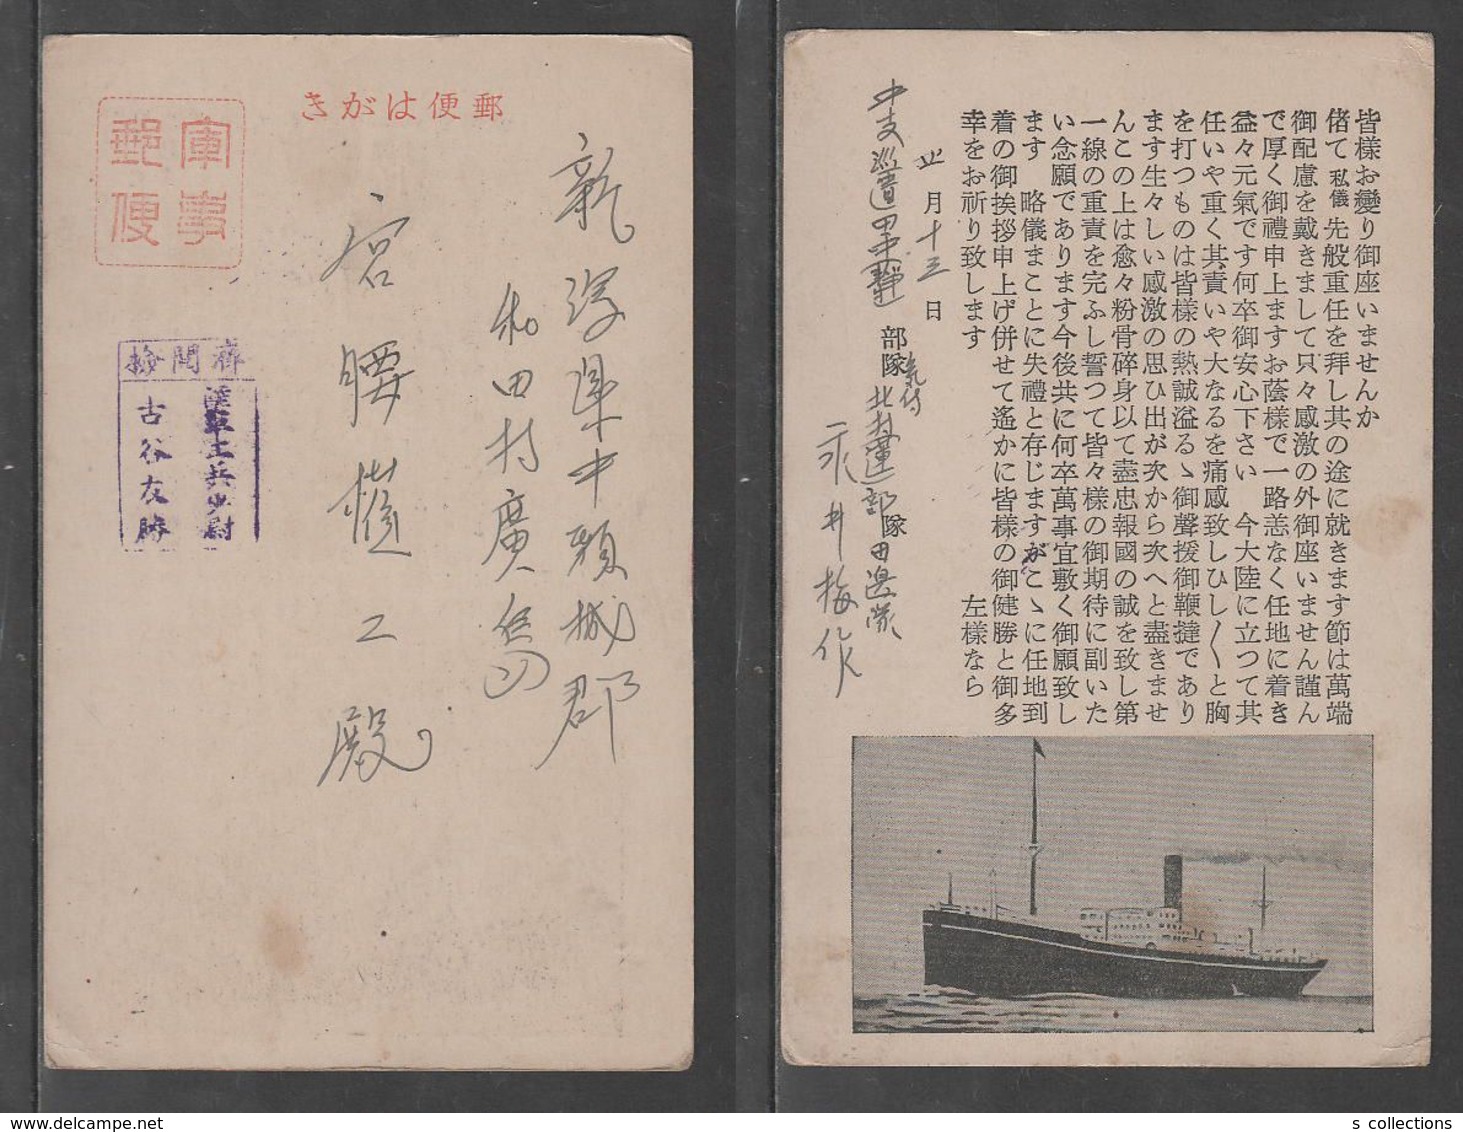 郵便はがき
軍事
郵便
検閲濟
陸軍工兵少尉
古谷友勝
新潟県中頸城郡
和田村廣島
宮腰
殿
皆様お變り御座いませんか
偖て私儀先般重任を拜し其の途に就きます節は萬端
御配慮を戴きまして只々感激の外御座いません謹ん
で厚く御禮申上ますお蔭様で一路恙なく任地に着き
益々元氣です何卒御安心下さい 今大陸に立つて其
任いや重く其責いや大なるを痛感致しひし〱と胸
を打つものは皆様の熱誠溢るゝ御聲援御鞭撻であり
ます生々しい感激の思ひ出が次から次へと盡きませ
んこの上は愈々粉骨碎身以て盡忠報國の誠を致し第
一線の重責を完ふし誓つて皆々様の御期待に副いた
い念願であります今後共に何卒萬事宜敷く御願致し
ます 略儀まことに失禮と存じますがこゝに任地到
着の御挨拶申上げ併せて遙かに皆様の御健勝と御多
幸をお祈り致します 左様なら
月十三日
中支派遣田中靜部隊気付北村部隊田邊隊
永井梅作
s collections